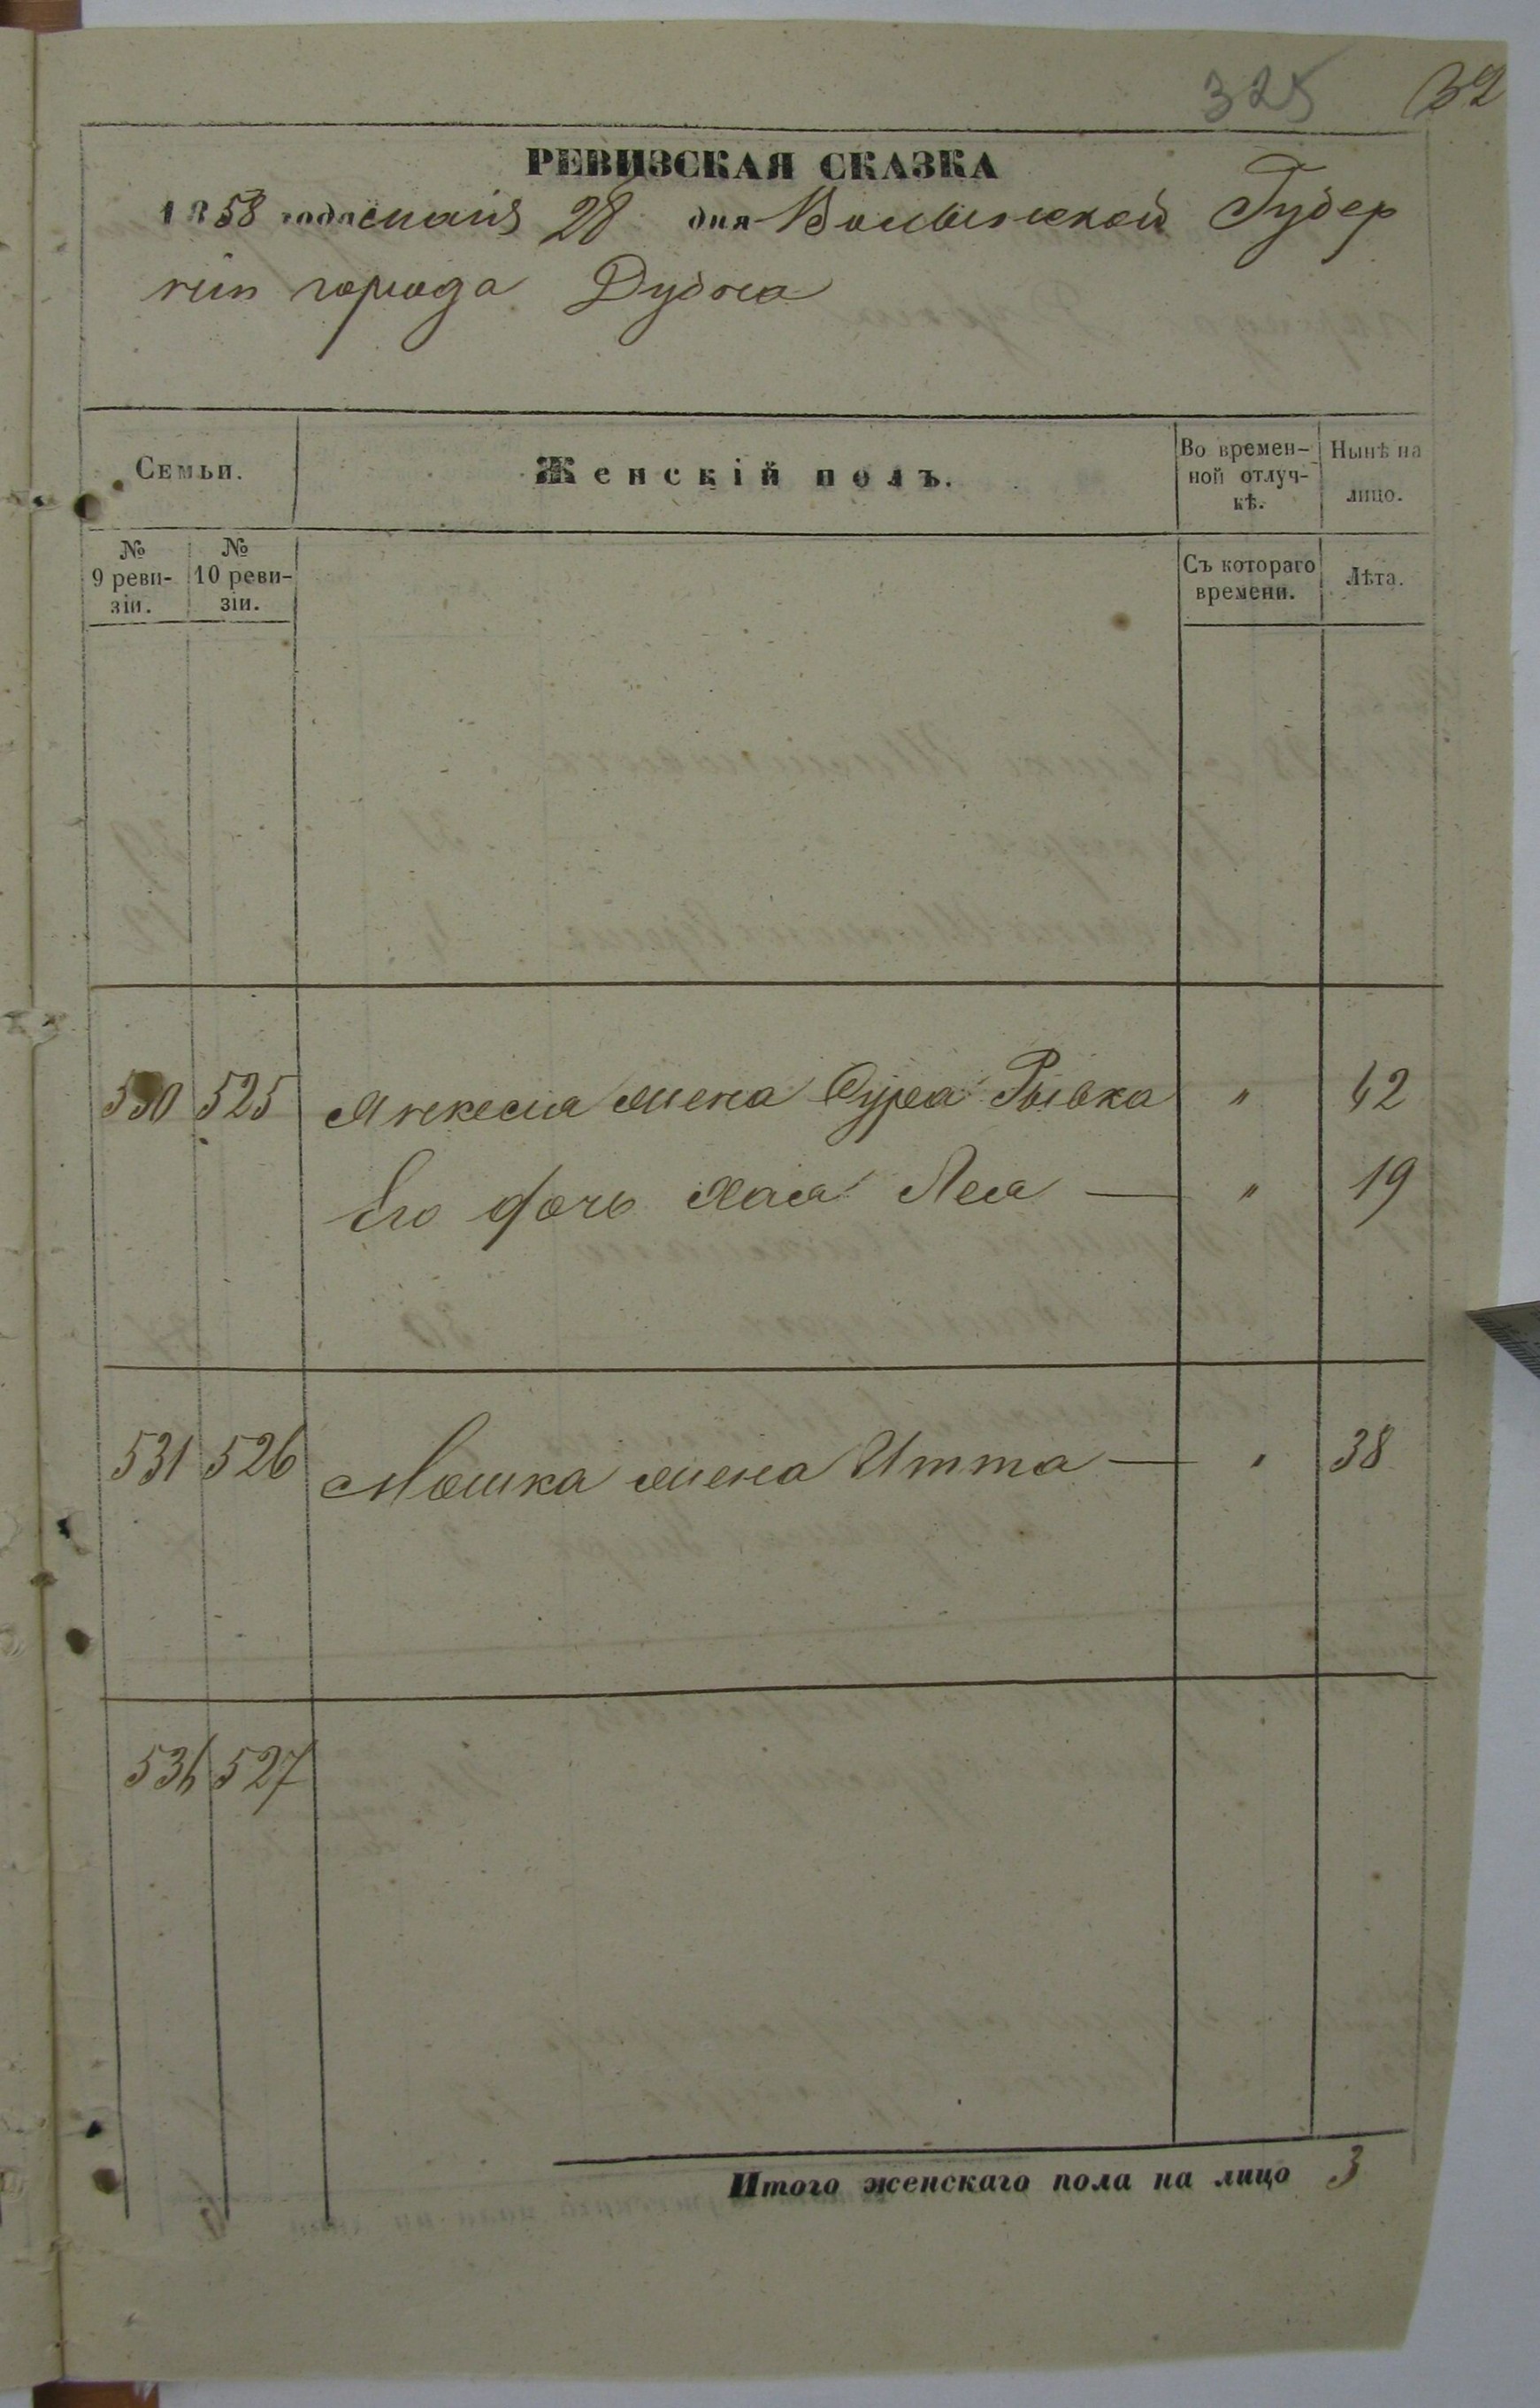 325 32
РЕВИЗСКАЯ СКАЗКА
1858 года маія 28 дня Волынской Губер
ніи города Дубна
Семьи. Женскій полъ. Во времен- Нынѣ на
ной отлуч- лицо.
кѣ.
№ № Съ котораго Лѣта.
9 реви- 10 реви- времени.
зіи. зіи.
530 525 Янкеля жена Сура Рывка " 42
Его дочь Хая Лея — " 19
531 526 Мошка жена Итта — " 38
527
Итого женскаго пола на лицо 3